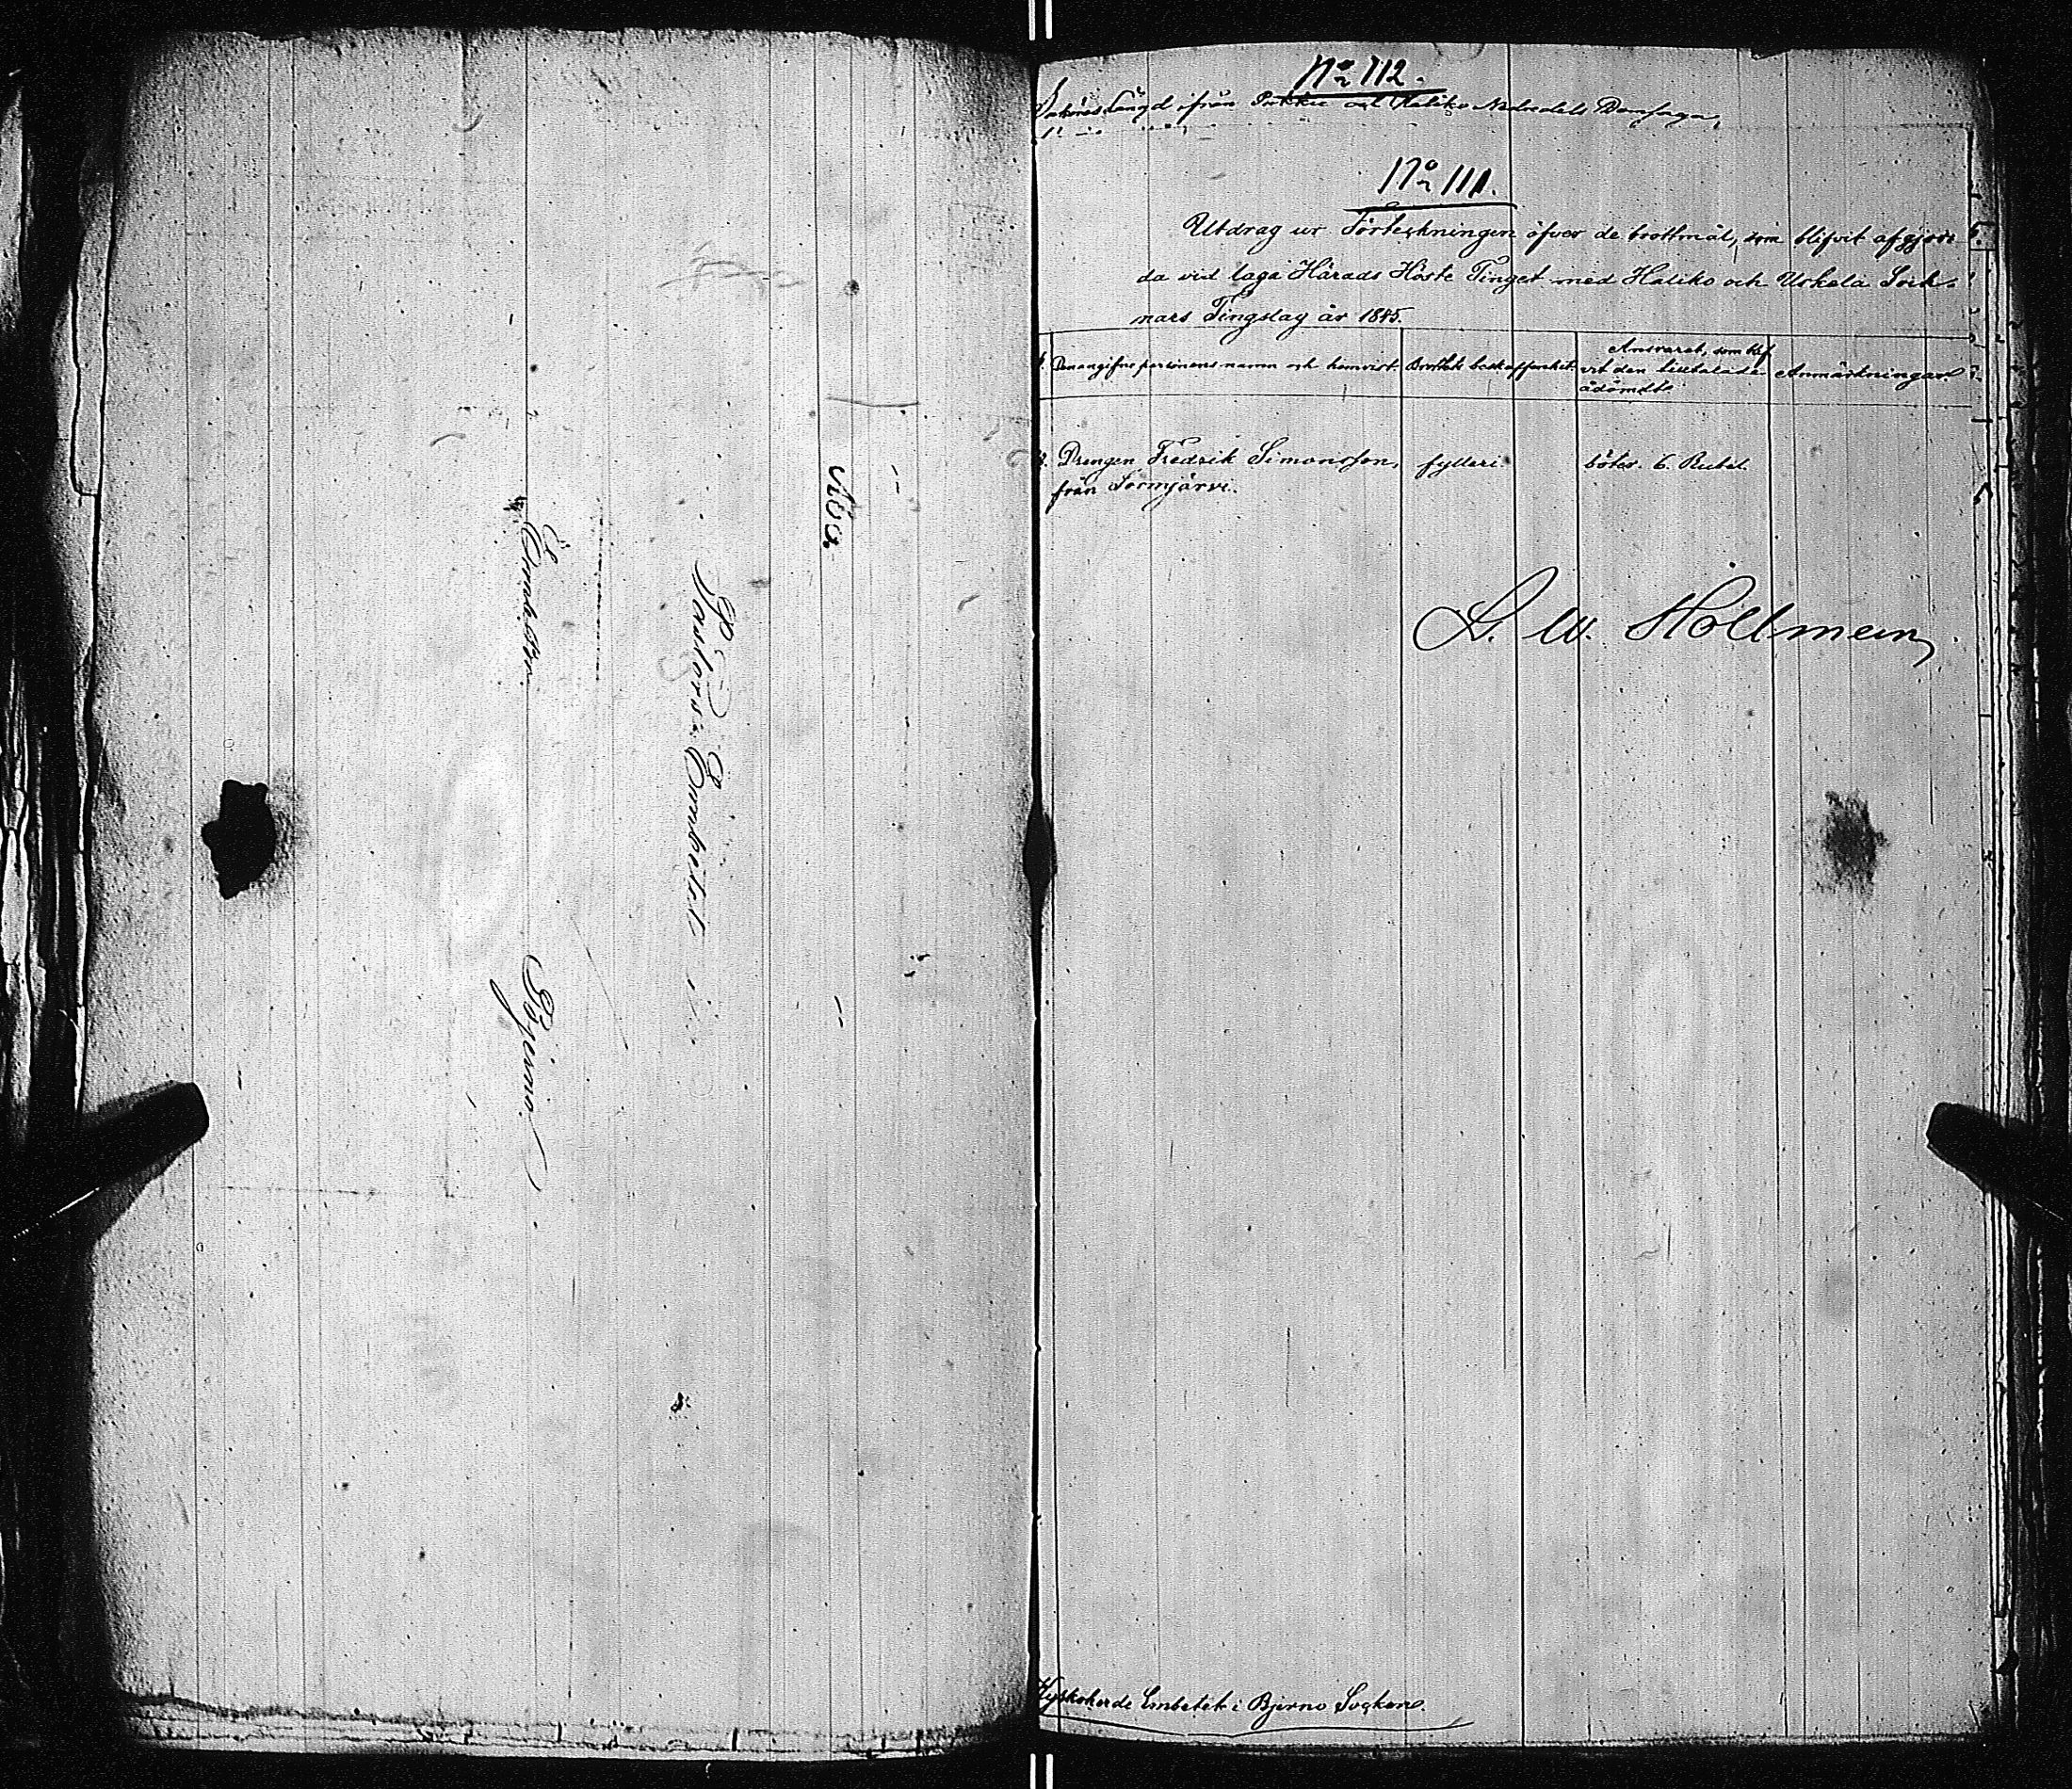 Åbo.
Pastors-Embetet i
Bjerno
No 112.
Längd ifrån och Haliko Nedredels Domsaga,
No 111.
Utdrag ur Förteckningen öfver de brottmål, som blifvit afgjor-
da vid laga Härads Höste Tinget med Haliko och Uskela Sock-
nars Tingslag år 1845.
Den angifne personens namn och hemvist.
Brottets beskaffenhet.
Ansvaret, som blif-
vit den tilltalade
ådömdt.
Anmärkningar.
Drengen Fredrik Simonsson, fylleri. böter. 6. Rubel.
från
A. W. Hollmen
Embetet i Bjerno Socken.